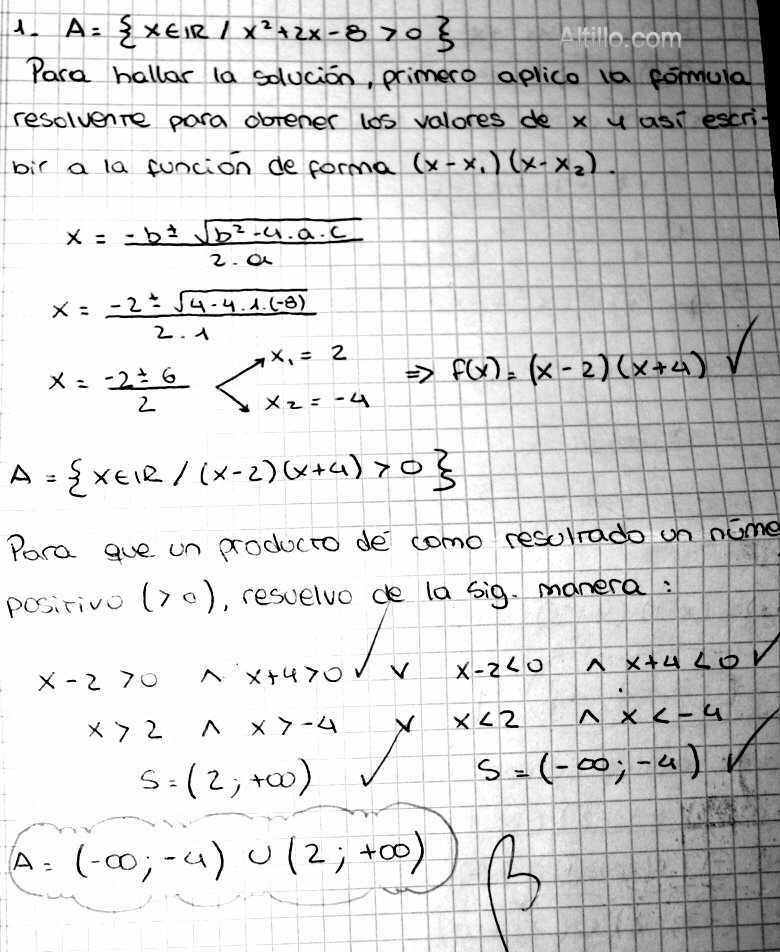 1. A = { x ∈ IR / x² + 2x - 8 > 0 }
Altillo.com
Para hallar la solución, primero aplico la fórmula
resolvente para obtener los valores de x y así escri-
bir a la función de forma (x - x₁) (x - x₂).
x = -b ± √(b² - 4.a.c) / 2.a
x = -2 ± √(4 - 4.1.(-8)) / 2.1
x = -2 ± 6 / 2
x₁ = 2
x₂ = -4
⇒ f(x) = (x - 2) (x + 4) ✓
A = { x ∈ IR / (x - 2) (x + 4) > 0 }
Para que un producto dé como resultado un núme
positivo (> 0), resuelvo de la sig. manera :
x - 2 > 0 ∧ x + 4 > 0 ✓ ∨ x - 2 < 0 ∧ x + 4 < 0 ✓
x > 2 ∧ x > -4 ∨ x < 2 ∧ x < -4
S = (2 ; +∞) ✓ S = (-∞ ; -4) ✓
A = (-∞ ; -4) ∪ (2 ; +∞)